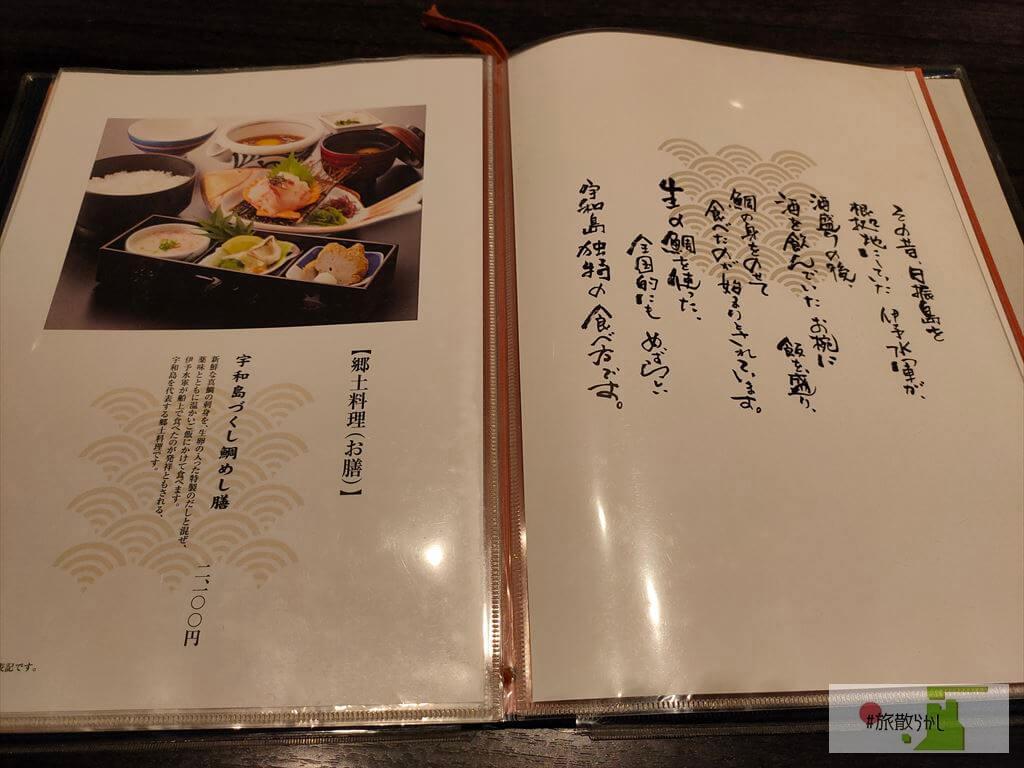 その昔、日振島を
根拠地にしていた 伊予水軍が、
酒盛りの後
酒を飲んでいたお椀に 飯を盛り、
鯛の身をのせて
食べたのが始まりとされています。
生の鯛を使った、
全国的にも めずらしい
宇和島独特の食べ方です。
【郷土料理(お膳)】
宇和島づくし鯛めし膳
新鮮な真鯛の刺身を、生卵の入った特製のだしと混ぜ、
薬味とともに温かいご飯にかけて食べます。
伊予水軍が船上で食べたのが発祥ともされる、
宇和島を代表する郷土料理です。
二、一〇〇円
表記です。
#旅散らかし